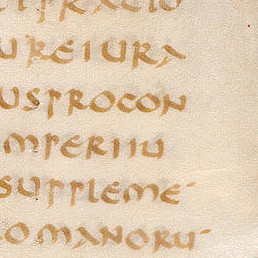 UREIURA
USPROCON
MPERIIU
SUPPLEME-
OMANORU-